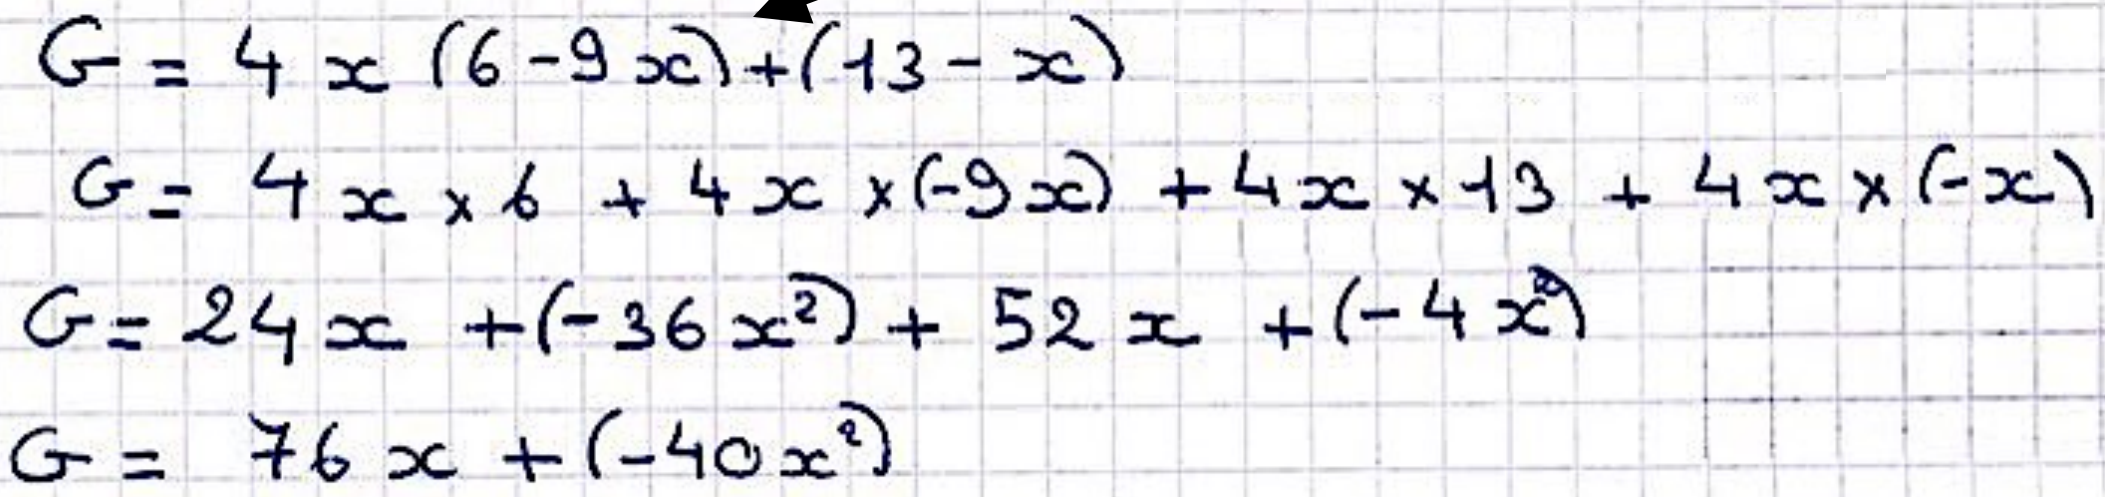 G = 4x(6-9x)+(13-x)
G = 4x×6 + 4x×(-9x) + 4x×13 + 4x×(-x)
G = 24x +(-36x²) + 52x +(-4x²)
G = 76x +(-40x²)